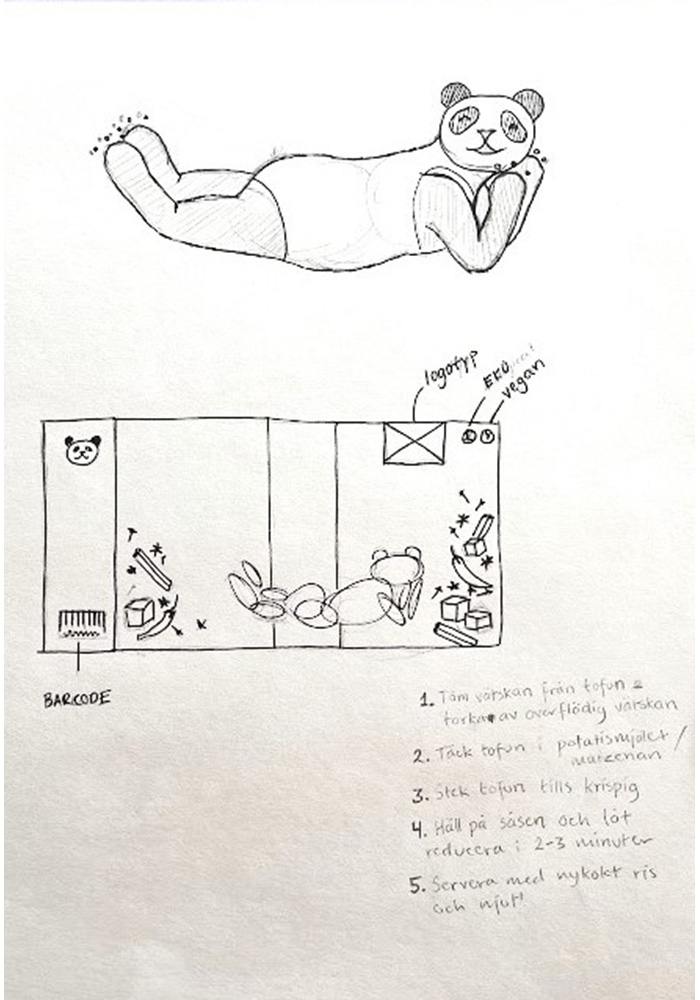 logotyp
EKO
vegan
BARCODE
1. Töm vätskan från tofun &
torka av överflödig vätskan
2. Täck tofun i potatismjölet /
maizenan
3. Stek tofun tills krispig
4. Häll på såsen och låt
reducera i 2-3 minuter
5. Servera med nykokt ris
och njut!